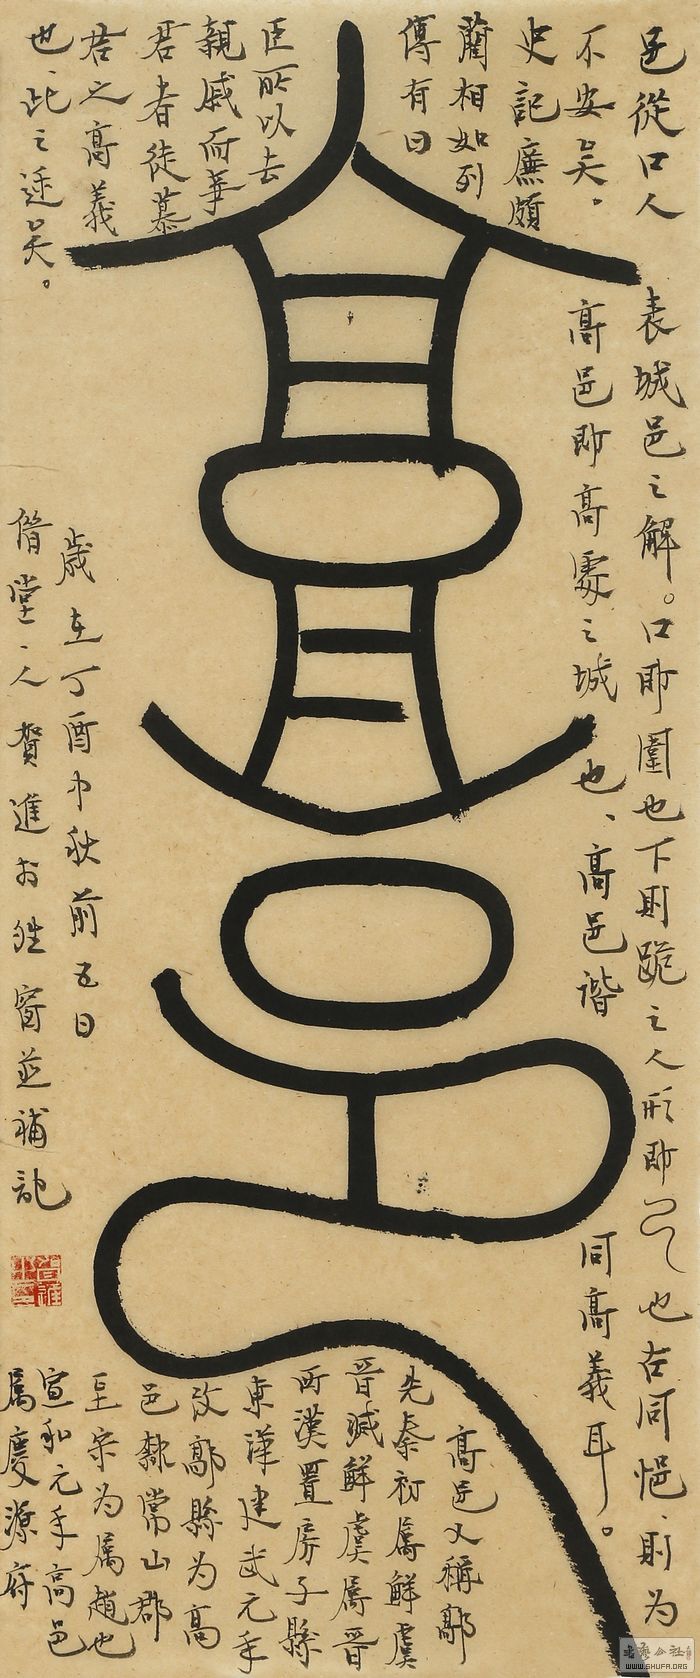 高邑
邑從口人表城邑之解。口即圍也下則跪之人形即㔾也古同悒、則為
不安矣。高邑即高處之城也、高邑諧同高義耳。
史記廉頗
藺相如列
傳有曰
臣所以去
親戚而事
君者徒慕
君之高義
也、此之矣。
高邑又稱鄗
先秦初屬鮮虞
晉滅鮮虞屬晉
西漢置房子縣
東漢建武元年
改鄗縣為高
邑隸常山郡
至宋為屬趙也
宣和元年高邑
屬慶源府
歲在丁酉中秋前五日
堂、人賀進於窗並補記
書藝公社
WWW.SHUFA.ORG